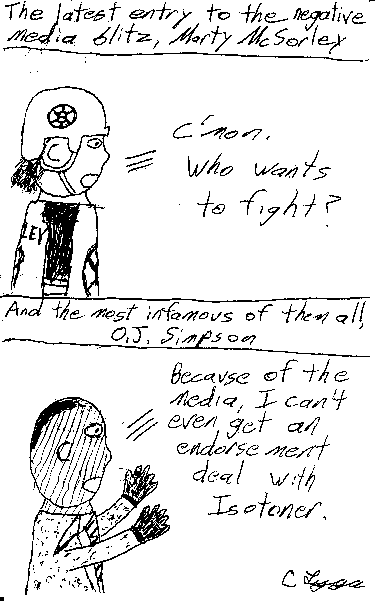 The latest entry to the negative
media blitz, Marty McSorley
C'mon.
Who wants
to fight?
LEY
And the most infamous of them all,
O.J. Simpson
Because of the
media, I can't
even get an
endorsement
deal with
Isotoner.
C